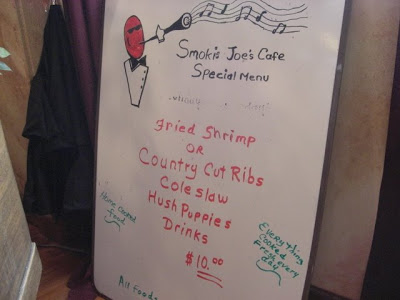 Smokis Joe's Cafe
Special Menu
Fried Shrimp
OR
Country Cut Ribs
Coleslaw
Hush Puppies
Drinks
$10.00
Home cooked
food
Everything
Cooked
Fresh every
day
All Foods